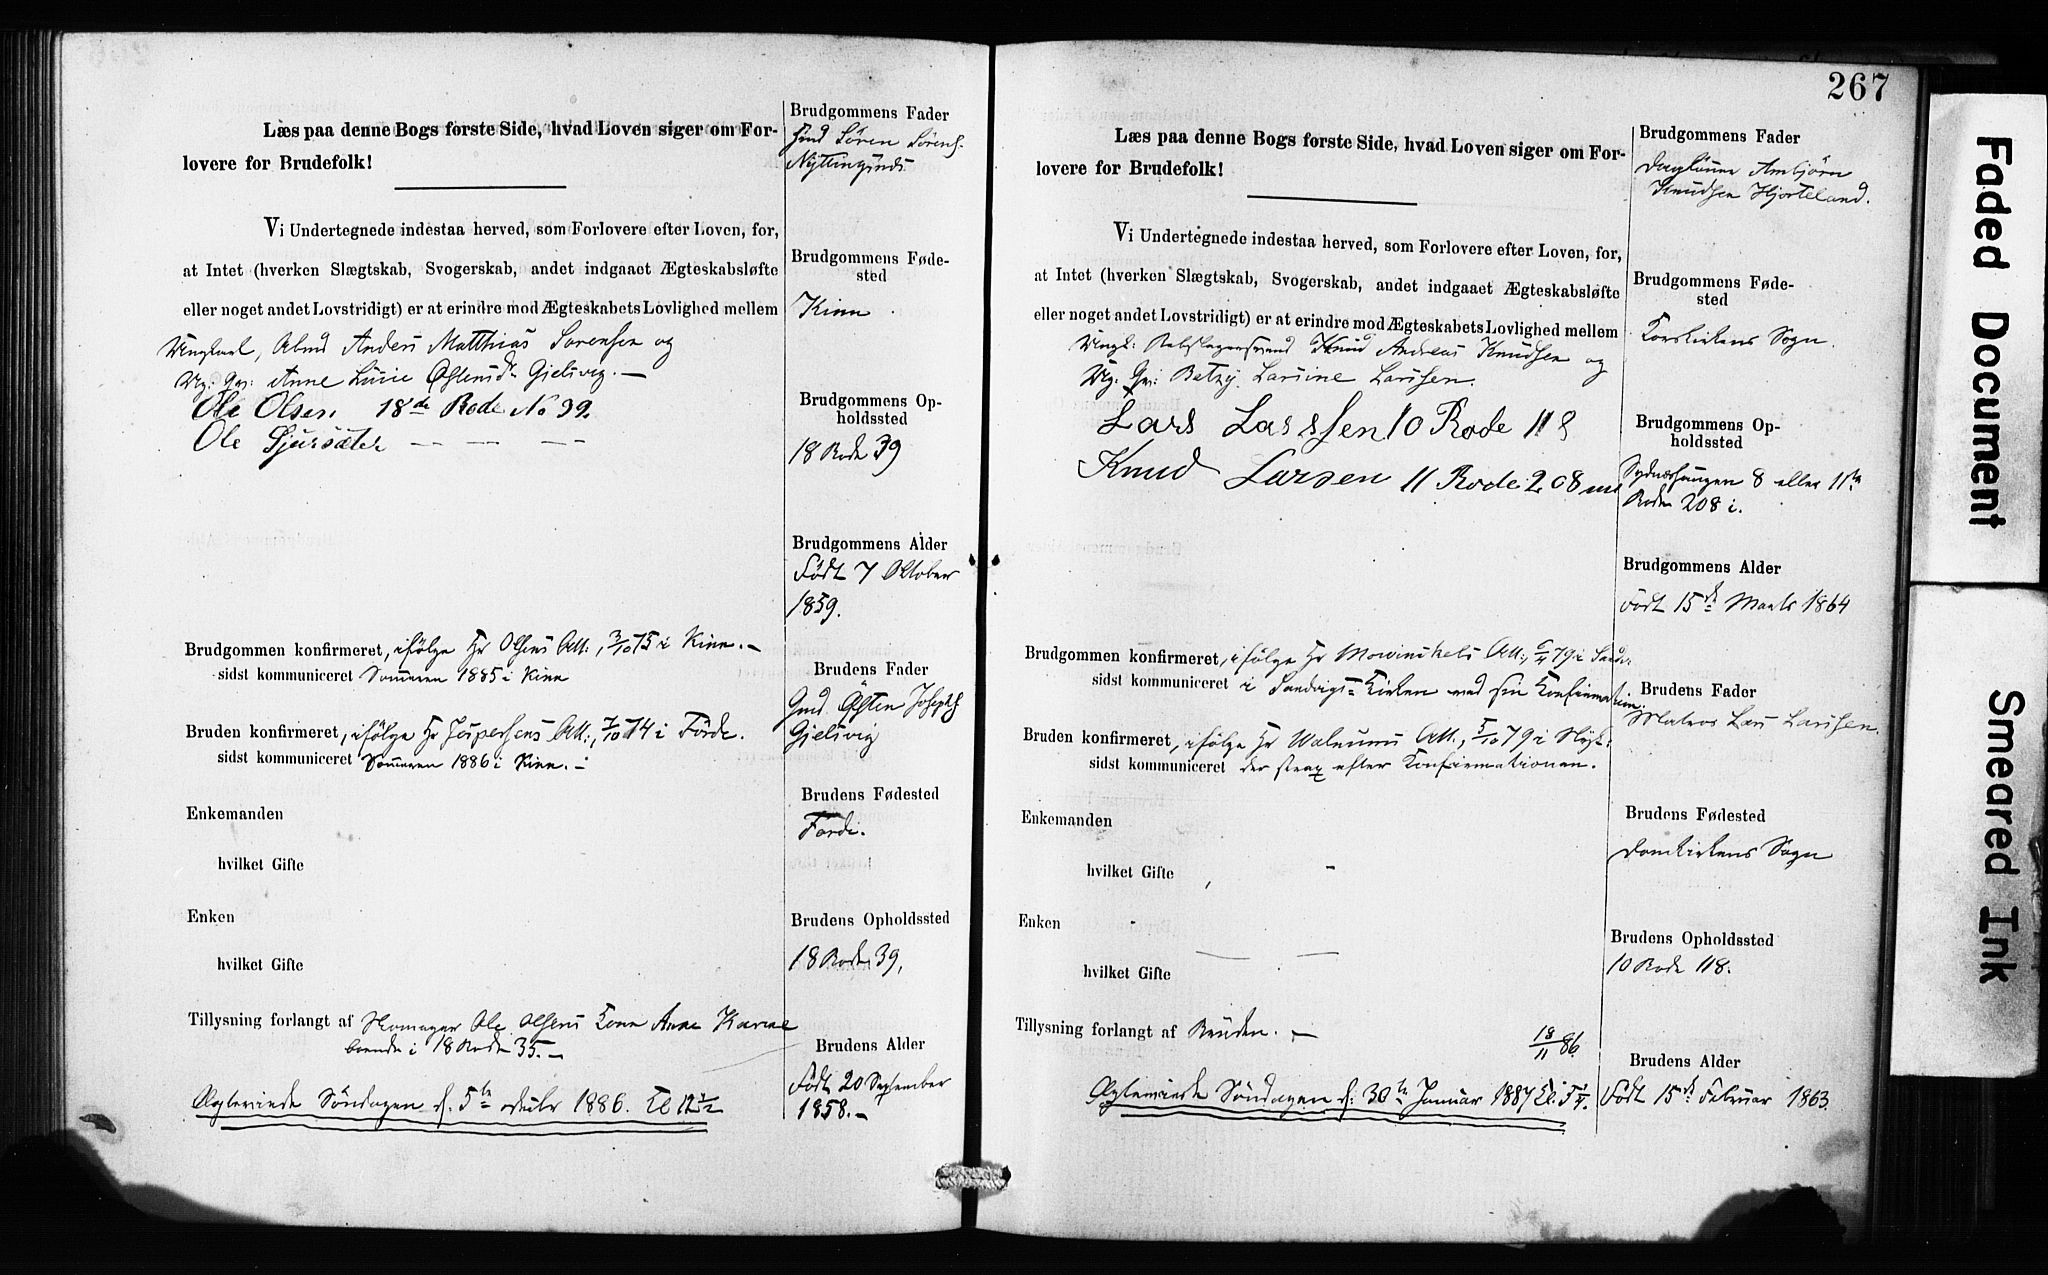 Læs paa denne Bogs første Side, hvad Loven siger om For-
lovere for Brudefolk!
Vi Undertegnede indestaa herved, som Forlovere efter Loven, for,
at Intet (hverken Slægtskab, Svogerskab, andet indgaaet Ægteskabsløfte
eller noget andet Lovstridigt) er at erindre mod Ægteskabets Lovlighed mellem
Ungkarl, Anders Matthias Sørensen og
Anne Østensdr Gjelsvig. —
Ole Olsen 18de Rode No 39.
Ole Sjursæter — — —
Brudgommen konfirmeret, ifølge Hr Olsens Att:, 3/10 75 i Kinn. —
sidst kommuniceret Sommeren 1885 i Kinn
Bruden konfirmeret, ifølge Hr Jespersens Att:, 7/10 74 i Førde.
sidst kommuniceret Sommeren 1886 i Kinn. —
Enkemanden
hvilket Gifte
Enken
hvilket Gifte
Tillysning forlangt af Skomager Ole Olsens Kone Anne Karine
boende i 18 Rode 35. —
Ægteviede Søndagen d. 5te 1886. Kl 12 1/2
Brudgommens Fader
Gmd Søren Sørens.
Brudgommens Føde-
sted
Kinn
Brudgommens Op-
holdssted
18 Rode 39
Brudgommens Alder
Født 7 Oktober
1859.
Brudens Fader
Gmd. Østen Josephs.
Gjelsvig
Brudens Fødested
Førde.
Brudens Opholdssted
18 Rode 39,
Brudens Alder
Født 20 September
1858. —
267
Læs paa denne Bogs første Side, hvad Loven siger om For-
lovere for Brudefolk!
Vi Undertegnede indestaa herved, som Forlovere efter Loven, for,
at Intet (hverken Slægtskab, Svogerskab, andet indgaaet Ægteskabsløfte
eller noget andet Lovstridigt) er at erindre mod Ægteskabets Lovlighed mellem
Ungk: Rebslagersvend Knud Andreas Knudsen og
Betzy Larsine Larssen.
Lars Larssen 10 Rode 118
Knud Larsen 11 Rode 208
Brudgommen konfirmeret, ifølge Hr Mowinckels Att:, 79 i
sidst kommuniceret i Sandvigs-Kirken med sin Konfirmation.
Bruden konfirmeret, ifølge Hr Walnums Att:, 5/10 79 i
sidst kommuniceret der strax efter Konfirmationen.
Enkemanden
hvilket Gifte
Enken
hvilket Gifte
Tillysning forlangt af Bruden. —
18/11 86
Ægteviede Søndagen d: 30te Januar 1887 Kl.
Brudgommens Fader
Daglønner Ambjørn
Knudsen Hjorteland.
Brudgommens Føde-
sted
Korskirkens Sogn.
Brudgommens Op-
holdssted
8 eller 11te
Rode 208 i.
Brudgommens Alder
Født 15de Marts 1864
Brudens Fader
Matros Lars Larssen.
Brudens Fødested
Domkirkens Sogn
Brudens Opholdssted
10 Rode 118.
Brudens Alder
Født 15de Februar 1863.
Faded Document
Smeared Ink